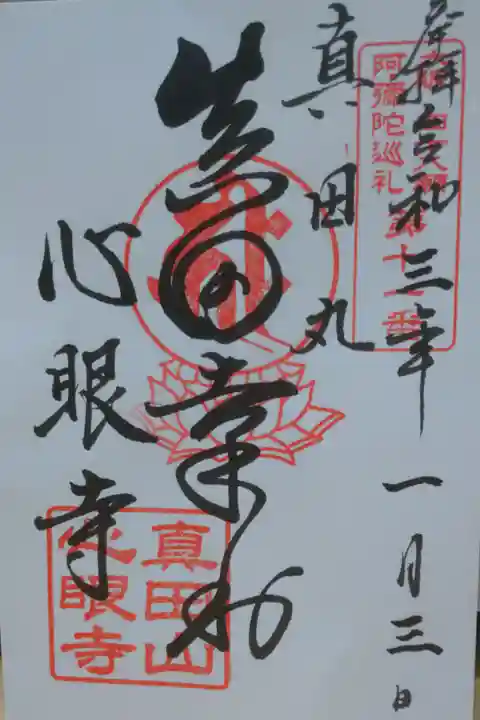 奉拝 令和三年一月三日
阿彌陀巡礼
真田丸
真田幸村
心眼寺
真田山
心眼寺